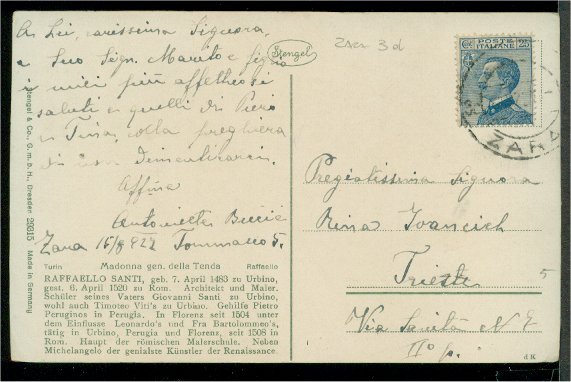 A Lei, carissima Signora,
e Suo Sign. Marito e figlio
i miei più affettuosi
saluti e quelli di Piero
e Tina, colla preghiera
di non dimenticarci.
Affma
Antonietta
Zara 16/8 922 Tommaseo 5.
Stengel
Zara 3d
POSTE ITALIANE
Ct 25
ZARA
Pregiatissima Signora
Rina Ivancich
Trieste
Via Sanità N
IIº p.
5
Stengel & Co., G. m. b. H., Dresden 29315 Made in Germany
Turin Madonna gen. della Tenda Raffaello
RAFFAELLO SANTI, geb. 7. April 1483 zu Urbino,
gest. 6. April 1520 zu Rom. Architekt und Maler.
Schüler seines Vaters Giovanni Santi zu Urbino,
wohl auch Timoteo Viti's zu Urbino. Gehilfe Pietro
Peruginos in Perugia. In Florenz seit 1504 unter
dem Einflusse Leonardo's und Fra Bartolommeo's,
tätig in Urbino, Perugia und Florenz, seit 1508 in
Rom. Haupt der römischen Malerschule. Neben
Michelangelo der genialste Künstler der Renaissance.
dK